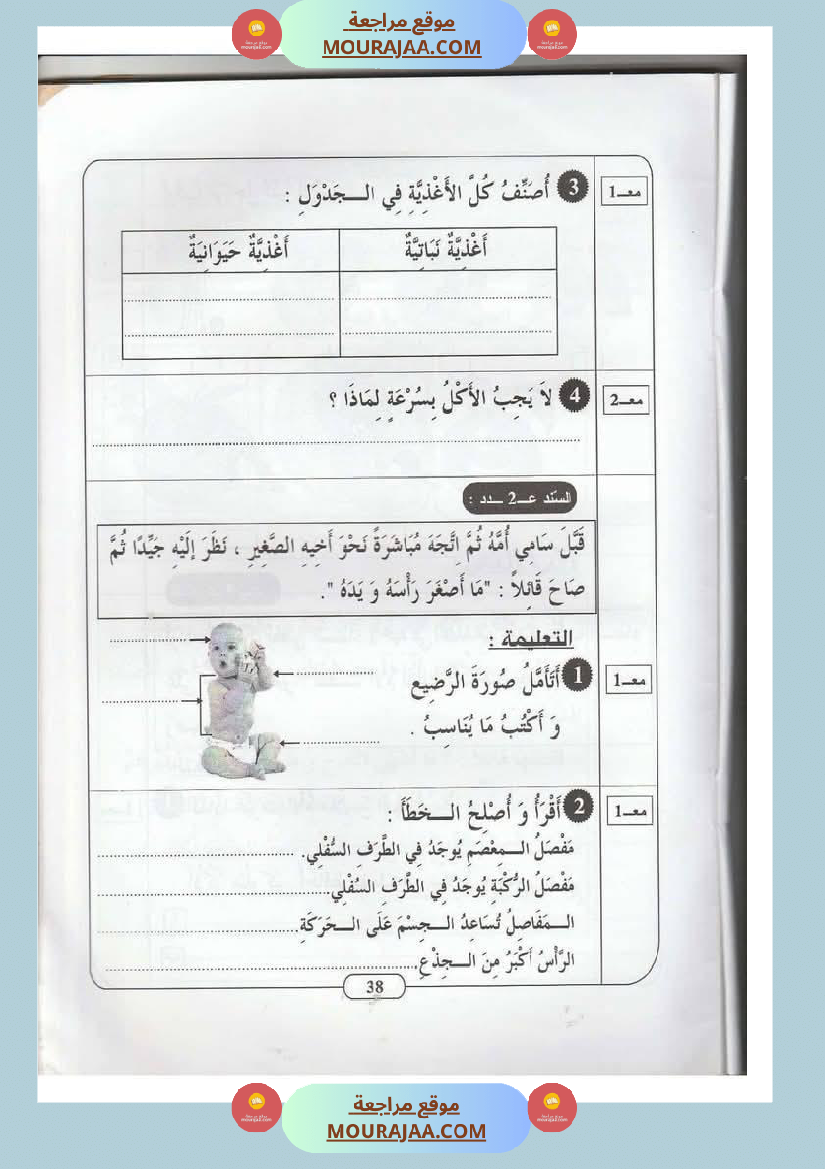 موقع مراجعة
MOURAJAA.COM
معـ1
3 أُصَنِّفُ كُلَّ الأَغْذِيَّةِ فِي الـــجَدْوَلِ :
أَغْذِيَّةٌ نَبَاتِيَّةٌ
أَغْذِيَّةٌ حَيَوَانِيَةٌ
معـ2
4 لاَ يَجِبُ الأَكْلُ بِسُرْعَةٍ لِمَاذَا ؟
السّند عـــ2 ـــدد :
قَبَّلَ سَامِي أُمَّهُ ثُمَّ اِتَّجَهَ مُبَاشَرَةً نَحْوَ أَخِيهِ الصَّغِيرِ ، نَظَرَ إِلَيْهِ جَيِّدًا ثُمَّ
صَاحَ قَائِلاً : "مَا أَصْغَرَ رَأْسَهُ وَ يَدَهُ ".
التعليمة :
معـ1
1 أَتَأَمَّلُ صُورَةَ الرَّضِيعِ
وَ أَكْتُبُ مَا يُنَاسِبُ .
معـ1
2 أَقْرَأُ وَ أُصْلِحُ الـــخَطَأَ :
مَفْصَلُ الـــمِعْصَمِ يُوجَدُ فِي الطَّرَفِ السُّفْلِي.
مَفْصَلُ الرُّكْبَةِ يُوجَدُ فِي الطَّرَفِ السُفْلِي.
الـــمَفَاصِلُ تُسَاعِدُ الـــجِسْمَ عَلَى الـــحَرَكَةِ.
الرَّأْسُ أَكْبَرُ مِنَ الـــجِذْعِ.
38
موقع مراجعة
MOURAJAA.COM